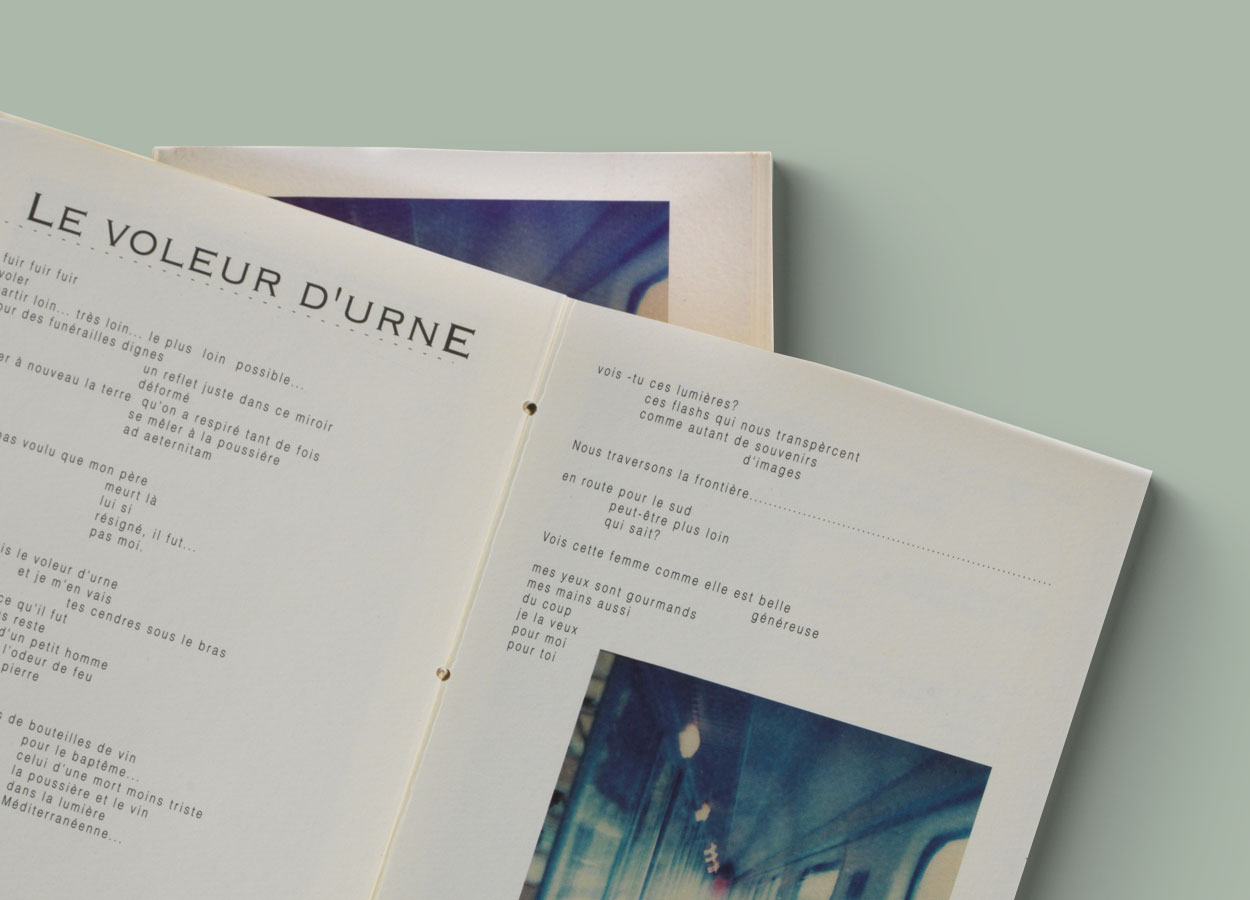 LE VOLEUR D'URNE
fuir fuir fuir
voler
loin... très loin... le plus loin possible...
des funérailles dignes
un reflet juste dans ce miroir
déformé
à nouveau la terre qu'on a respiré tant de fois
se mêler à la poussière
ad aeternitam
pas voulu que mon père
meurt là
lui si
résigné, il fut...
pas moi.
le voleur d'urne
et je m'en vais
tes cendres sous le bras
ce qu'il fut
reste
d'un petit homme
l'odeur de feu
pierre
de bouteilles de vin
pour le baptême...
celui d'une mort moins triste
la poussière et le vin
dans la lumière
Méditerranéenne...
vois -tu ces lumières?
ces flashs qui nous transpèrcent
comme autant de souvenirs
d'images
Nous traversons la frontière........................................................
en route pour le sud
peut-être plus loin
qui sait?
Vois cette femme comme elle est belle
généreuse
mes yeux sont gourmands
mes mains aussi
du coup
je la veux
pour moi
pour toi